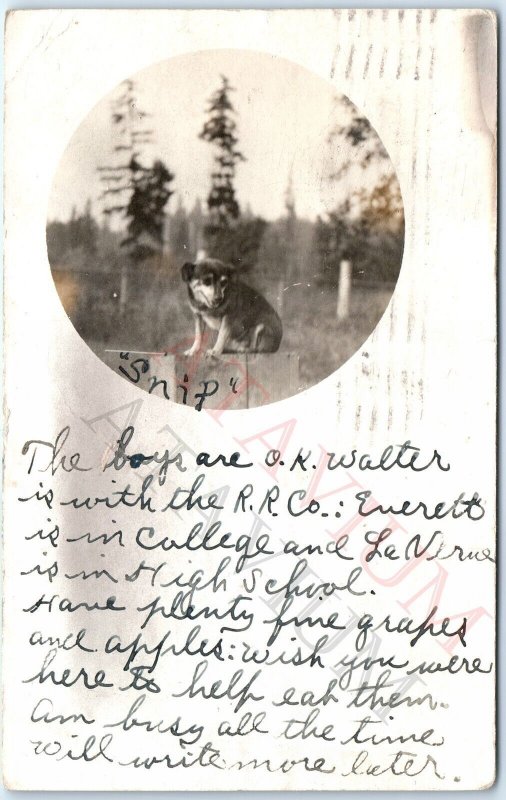 "Snip"
The boys are O.K. Walter
is with the R.R.Co.: Everett
is in College and La Verne
is in High School.
Have plenty fine grapes
and apples: wish you were
here to help eat them.
Am busy all the time
Will write more later.
ATAVIUM
ATAVIUM